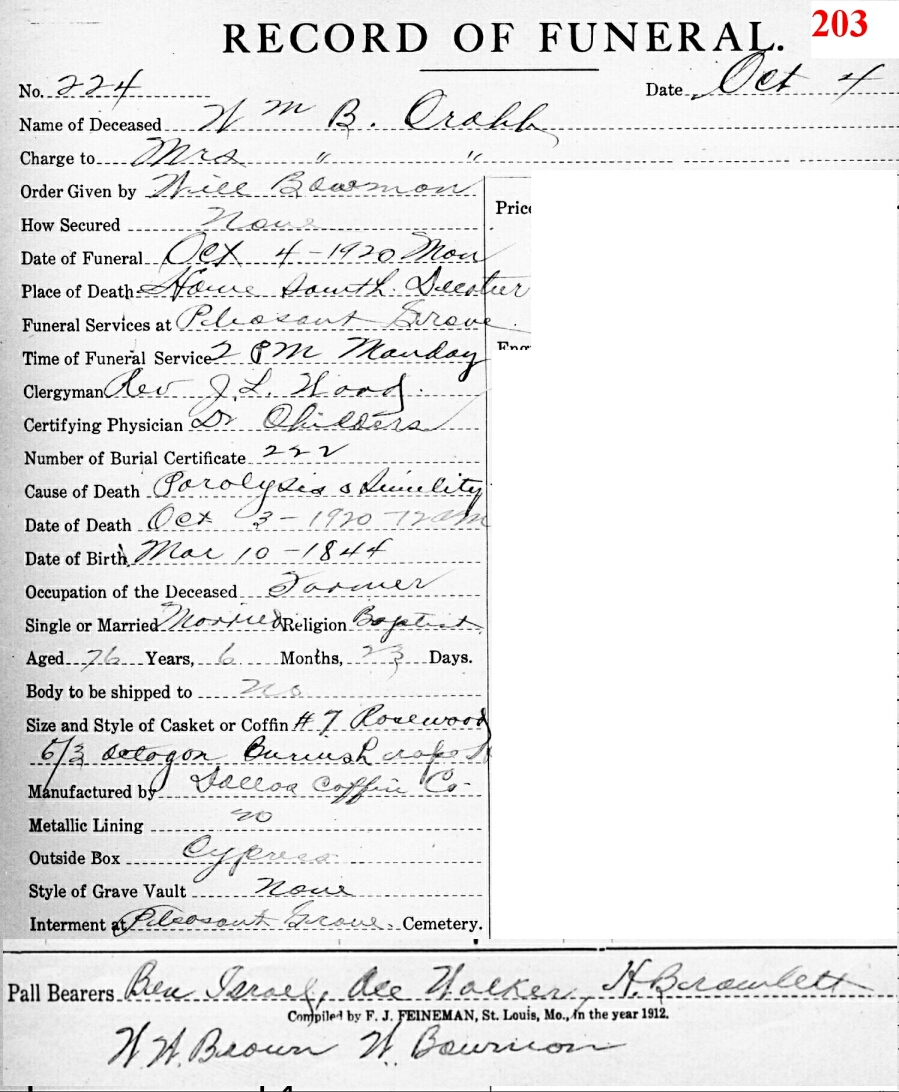 RECORD OF FUNERAL. 203
No. 224 Date Oct 4
Name of Deceased Wm B. Crabb
Charge to Mrs " "
Order Given by Will Bowman
How Secured None
Price
Date of Funeral Oct 4-1920 Mon
Place of Death Home South. Decatur
Funeral Services at Pleasant Grove
Time of Funeral Service 2 PM Monday
Clergyman Rev J. L. Wood
Certifying Physician Dr Childers
Number of Burial Certificate 222
Cause of Death Paralysis & Sinility
Date of Death Oct 3-1920-12 AM
Date of Birth Mar 10-1844
Occupation of the Deceased Farmer
Single or Married Married Religion Baptist
Aged 76 Years, 6 Months, 23 Days.
Body to be shipped to No
Size and Style of Casket or Coffin # 7 Rosewood
6/3 octogon Burnish
Manufactured by Dallas Coffin Co-
Metallic Lining no
Outside Box Cypress
Style of Grave Vault None
Interment at Pleasant Grove. Cemetery.
Pall Bearers Ben Israel, Walker, H.
Compiled by F. J. FEINEMAN, St. Louis, Mo., in the year 1912.
W. W. Brown W. Bowmon